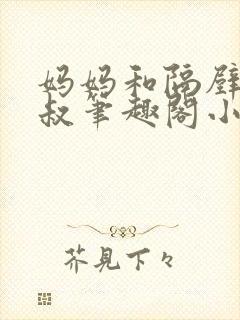 妈妈和隔壁
叔筆趣閣小
芥見下々